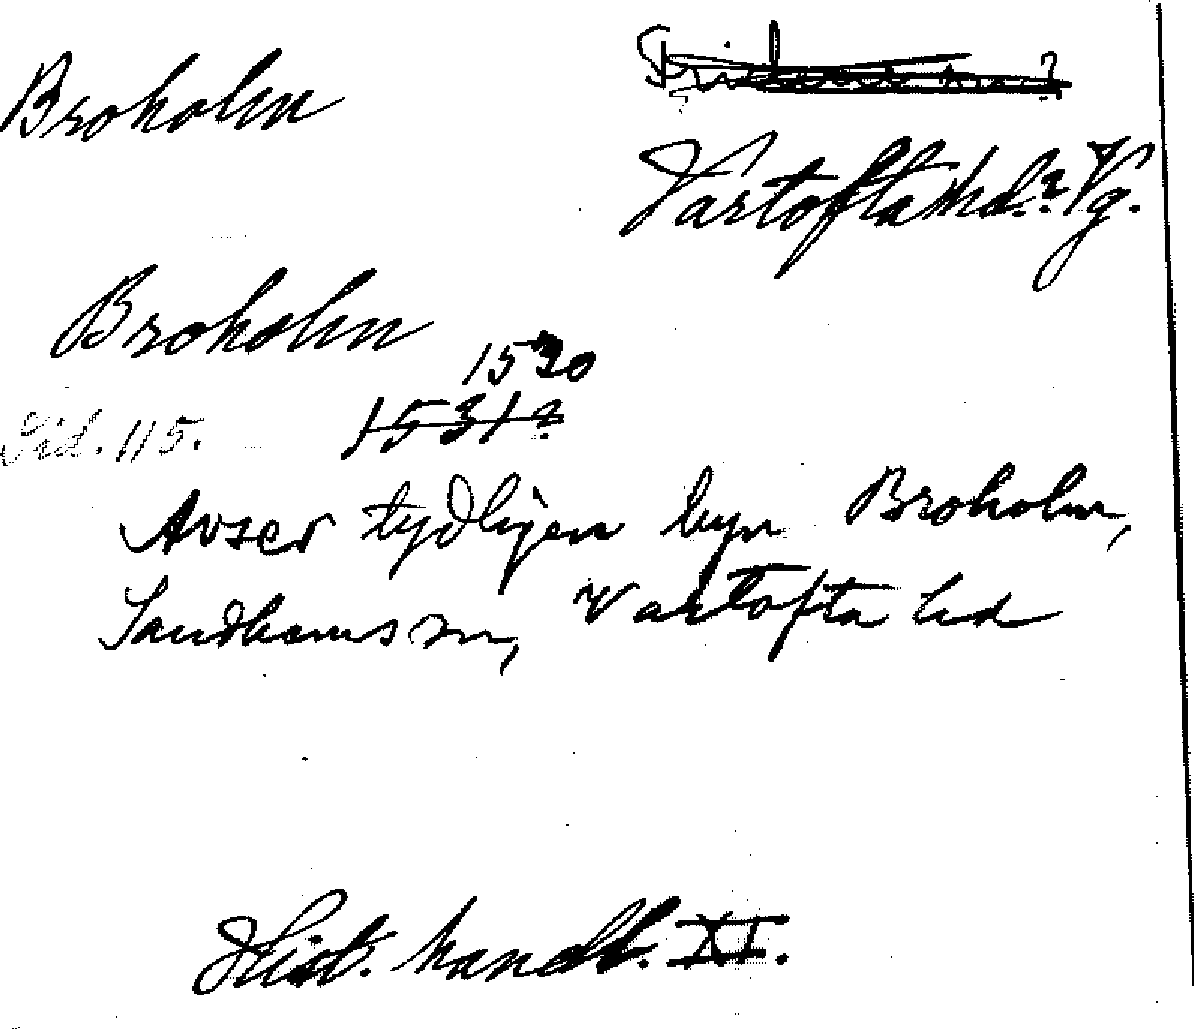 Broholm
Vartofta hd.? Vg.
Broholm
1530
Sid. 115. 1531?
Avser tydligen byn Broholm,
Sandhems sn, Vartofta hd
Hist. handl. XI.